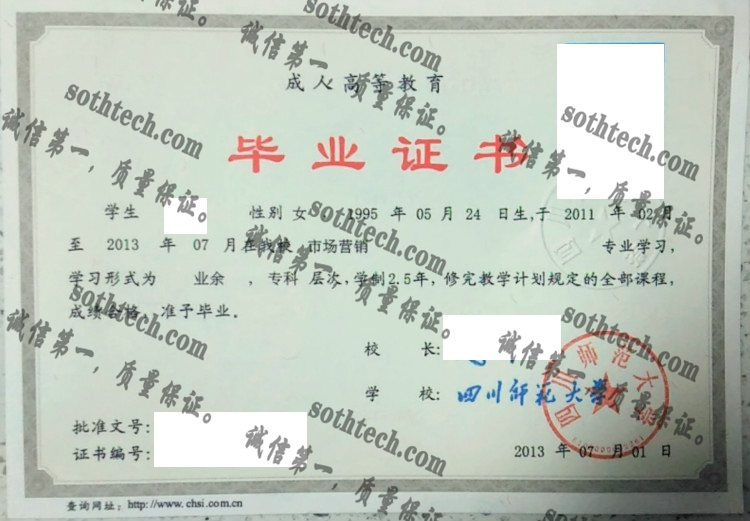 成人高等教育
毕业证书
学生 性别 女 1995 年 05 月 24 日生,于 2011 年 02 月
至 2013 年 07 月在我校 市场营销 专业学习,
学习形式为 业余 ,专科 层次,学制2.5年,修完教学计划规定的全部课程,
成绩合格,准予毕业。
校 长:
学 校: 四川师范大学
四川师范大学
批准文号:
证书编号:
2013 年 07 月 01 日
查询网址: http://www.chsi.com.cn
sothtech.com
诚信第一,质量保证。
sothtech.com
诚信第一,质量保证。
sothtech.com
诚信第一,质量保证。
sothtech.com
诚信第一,质量保证。
sothtech.com
诚信第一,质量保证。
sothtech.com
诚信第一,质量保证。